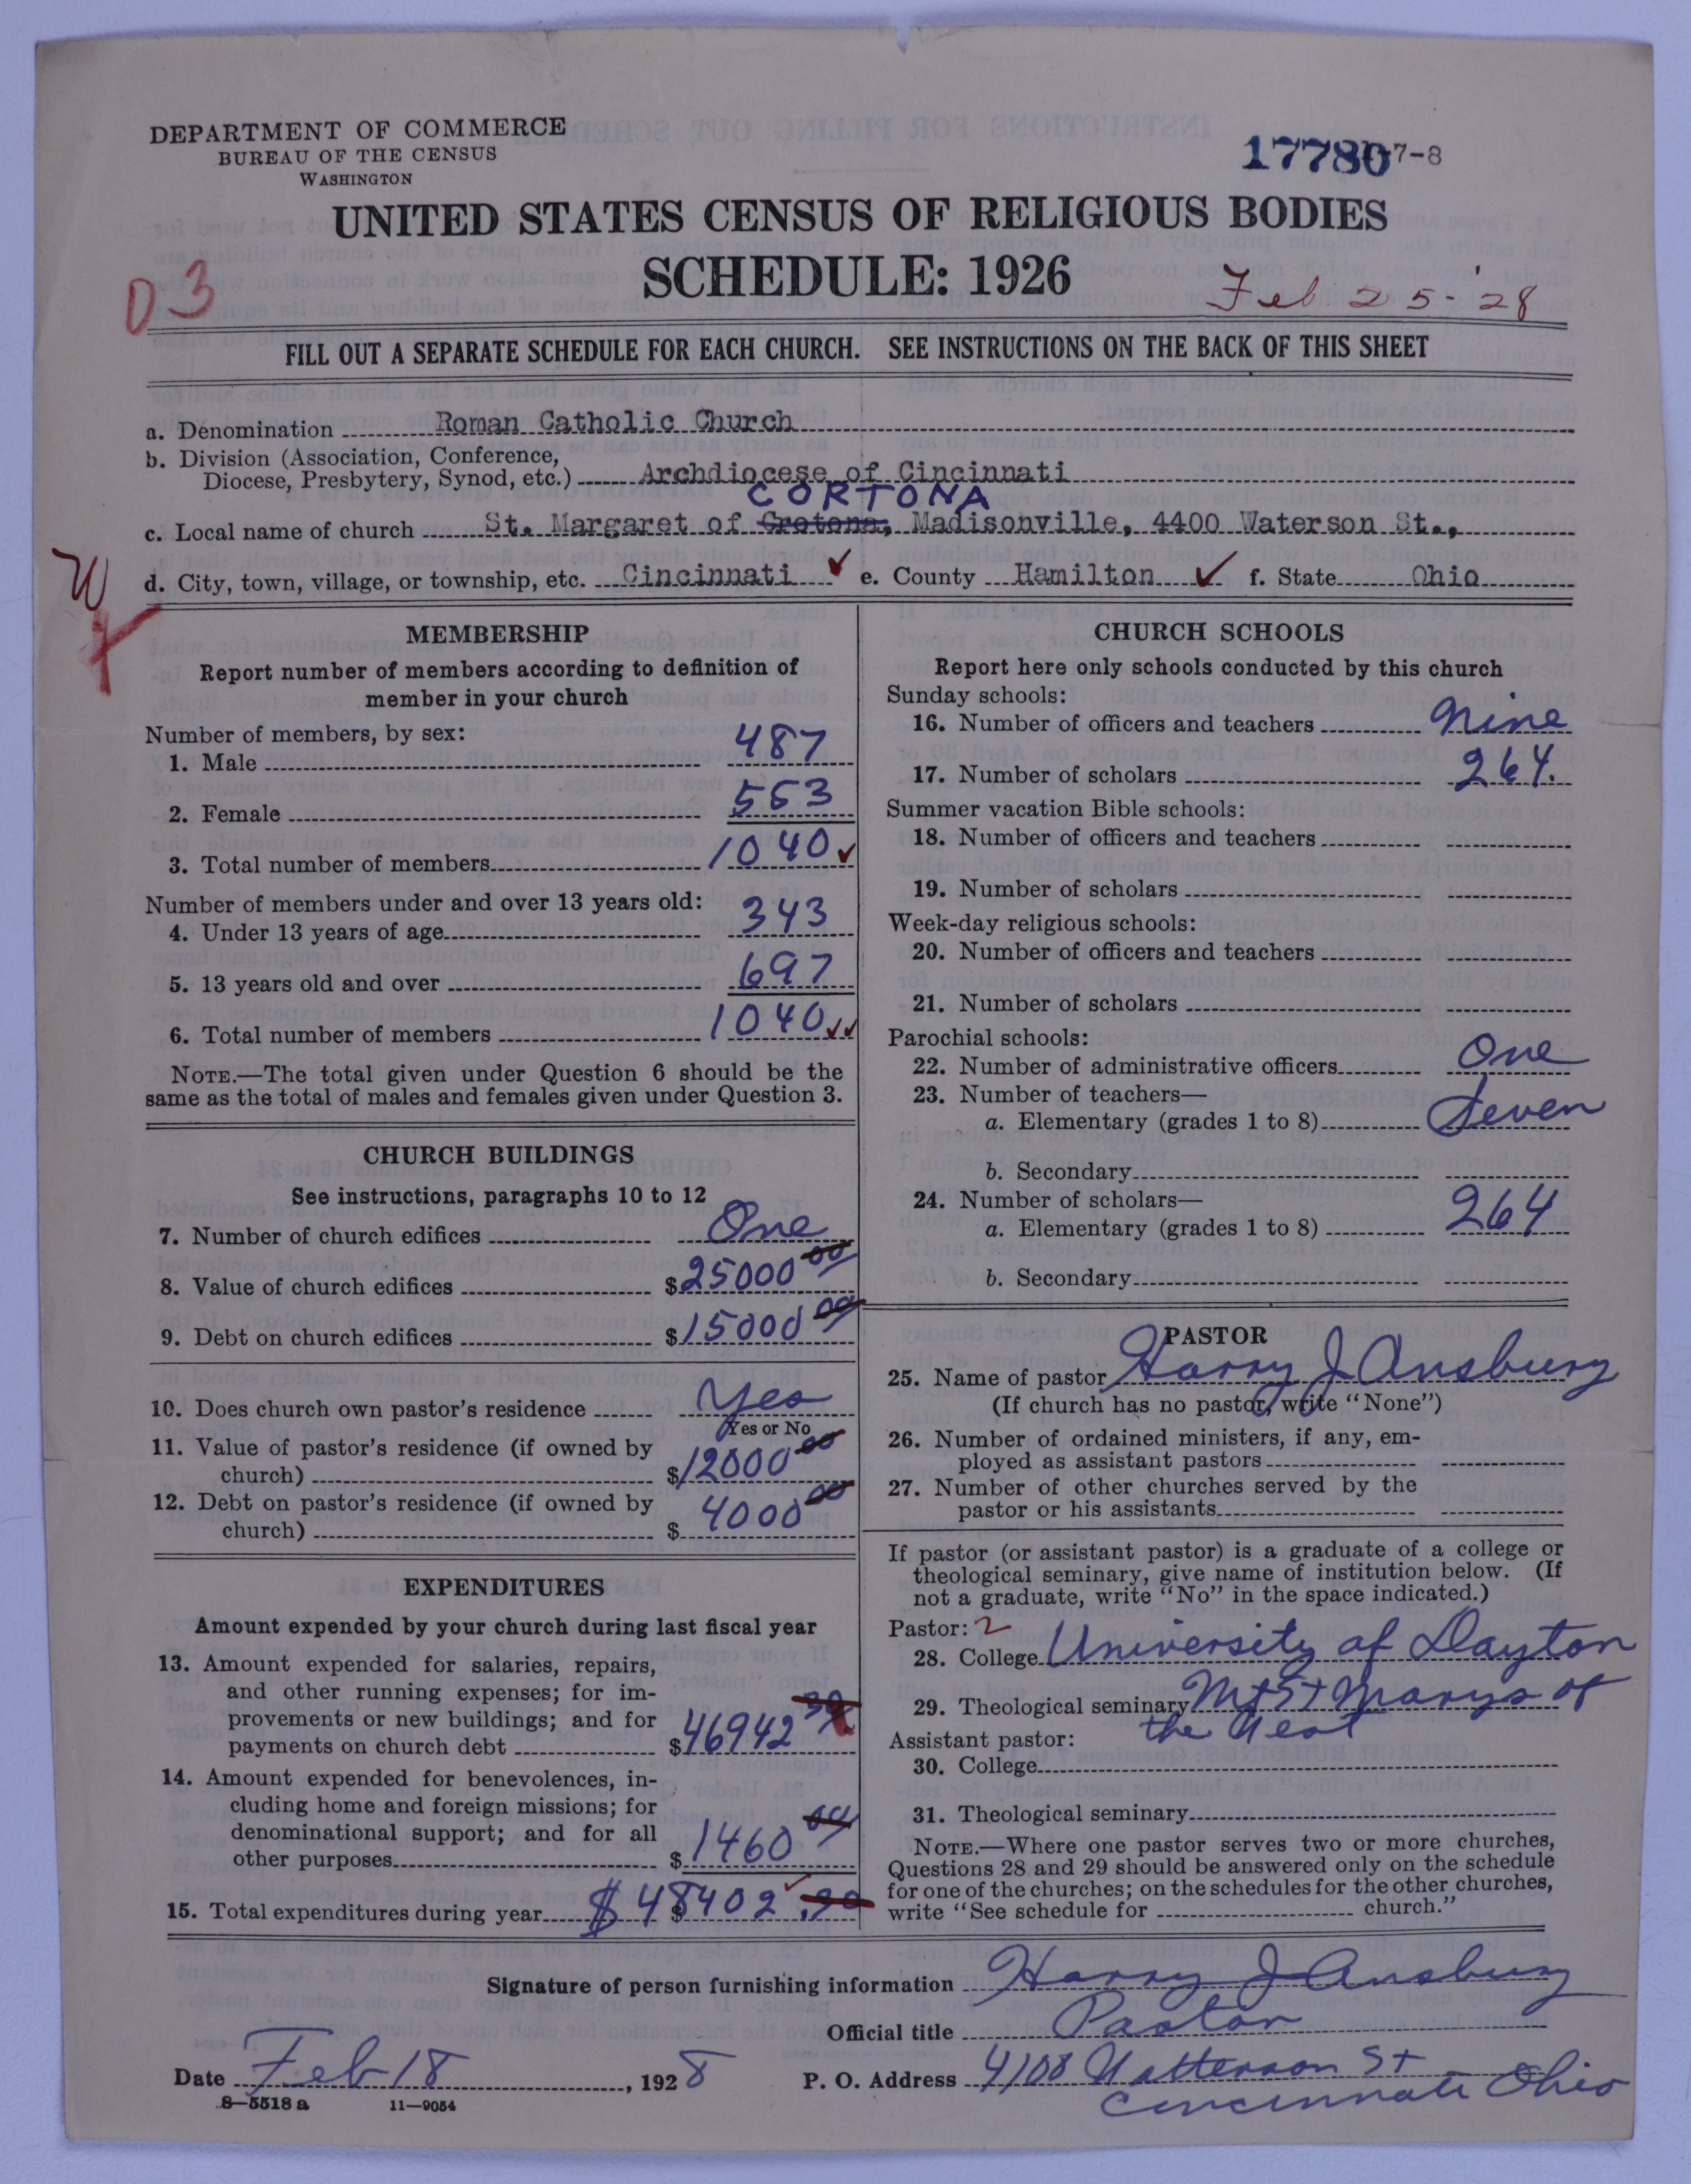 DEPARTMENT OF COMMERCE
BUREAU OF THE CENSUS
WASHINGTON
17780 7-8
UNITED STATES CENSUS OF RELIGIOUS BODIES
SCHEDULE: 1926
03
Feb 25-28
FILL OUT A SEPARATE SCHEDULE FOR EACH CHURCH. SEE INSTRUCTIONS ON THE BACK OF THIS SHEET
a. Denomination Roman Catholic Church
b. Division (Association, Conference,
Diocese, Presbytery, Synod, etc.) Archdiocese of Cincinnati
CORTONA
c. Local name of church St. Margaret of Crotona, Madisonville, 4400 Waterson St.,
d. City, town, village, or township, etc. Cincinnati ✓ e. County Hamilton ✓ f. State Ohio
MEMBERSHIP
Report number of members according to definition of
member in your church
Number of members, by sex:
1. Male 487
2. Female 553
3. Total number of members 1040 ✓
Number of members under and over 13 years old:
4. Under 13 years of age 343
5. 13 years old and over 697
6. Total number of members 1040 ✓✓
NOTE.—The total given under Question 6 should be the
same as the total of males and females given under Question 3.
CHURCH BUILDINGS
See instructions, paragraphs 10 to 12
7. Number of church edifices One
8. Value of church edifices $25000 00
9. Debt on church edifices $15000 00
10. Does church own pastor's residence Yes
Yes or No
11. Value of pastor's residence (if owned by
church) $12000 00
12. Debt on pastor's residence (if owned by
church) $4000 00
EXPENDITURES
Amount expended by your church during last fiscal year
13. Amount expended for salaries, repairs,
and other running expenses; for im-
provements or new buildings; and for
payments on church debt $46942
14. Amount expended for benevolences, in-
cluding home and foreign missions; for
denominational support; and for all
other purposes $1460 04
15. Total expenditures during year $48402
CHURCH SCHOOLS
Report here only schools conducted by this church
Sunday schools:
16. Number of officers and teachers Nine
17. Number of scholars 264.
Summer vacation Bible schools:
18. Number of officers and teachers
19. Number of scholars
Week-day religious schools:
20. Number of officers and teachers
21. Number of scholars
Parochial schools:
22. Number of administrative officers One
23. Number of teachers—
a. Elementary (grades 1 to 8) Seven
b. Secondary
24. Number of scholars—
a. Elementary (grades 1 to 8) 264
b. Secondary
PASTOR
25. Name of pastor Harry J Ansbury
(If church has no pastor, write "None")
26. Number of ordained ministers, if any, em-
ployed as assistant pastors
27. Number of other churches served by the
pastor or his assistants
If pastor (or assistant pastor) is a graduate of a college or
theological seminary, give name of institution below. (If
not a graduate, write "No" in the space indicated.)
Pastor: 2
28. College University of Dayton
29. Theological seminary Mt St Marys of
the West
Assistant pastor:
30. College
31. Theological seminary
NOTE.—Where one pastor serves two or more churches,
Questions 28 and 29 should be answered only on the schedule
for one of the churches; on the schedules for the other churches,
write "See schedule for church."
Signature of person furnishing information Harry J Ansbury
Official title Pastor
Date Feb 18, 1928 P. O. Address 4108 Watterson St
Cincinnati Ohio
8—5518 a 11—9054